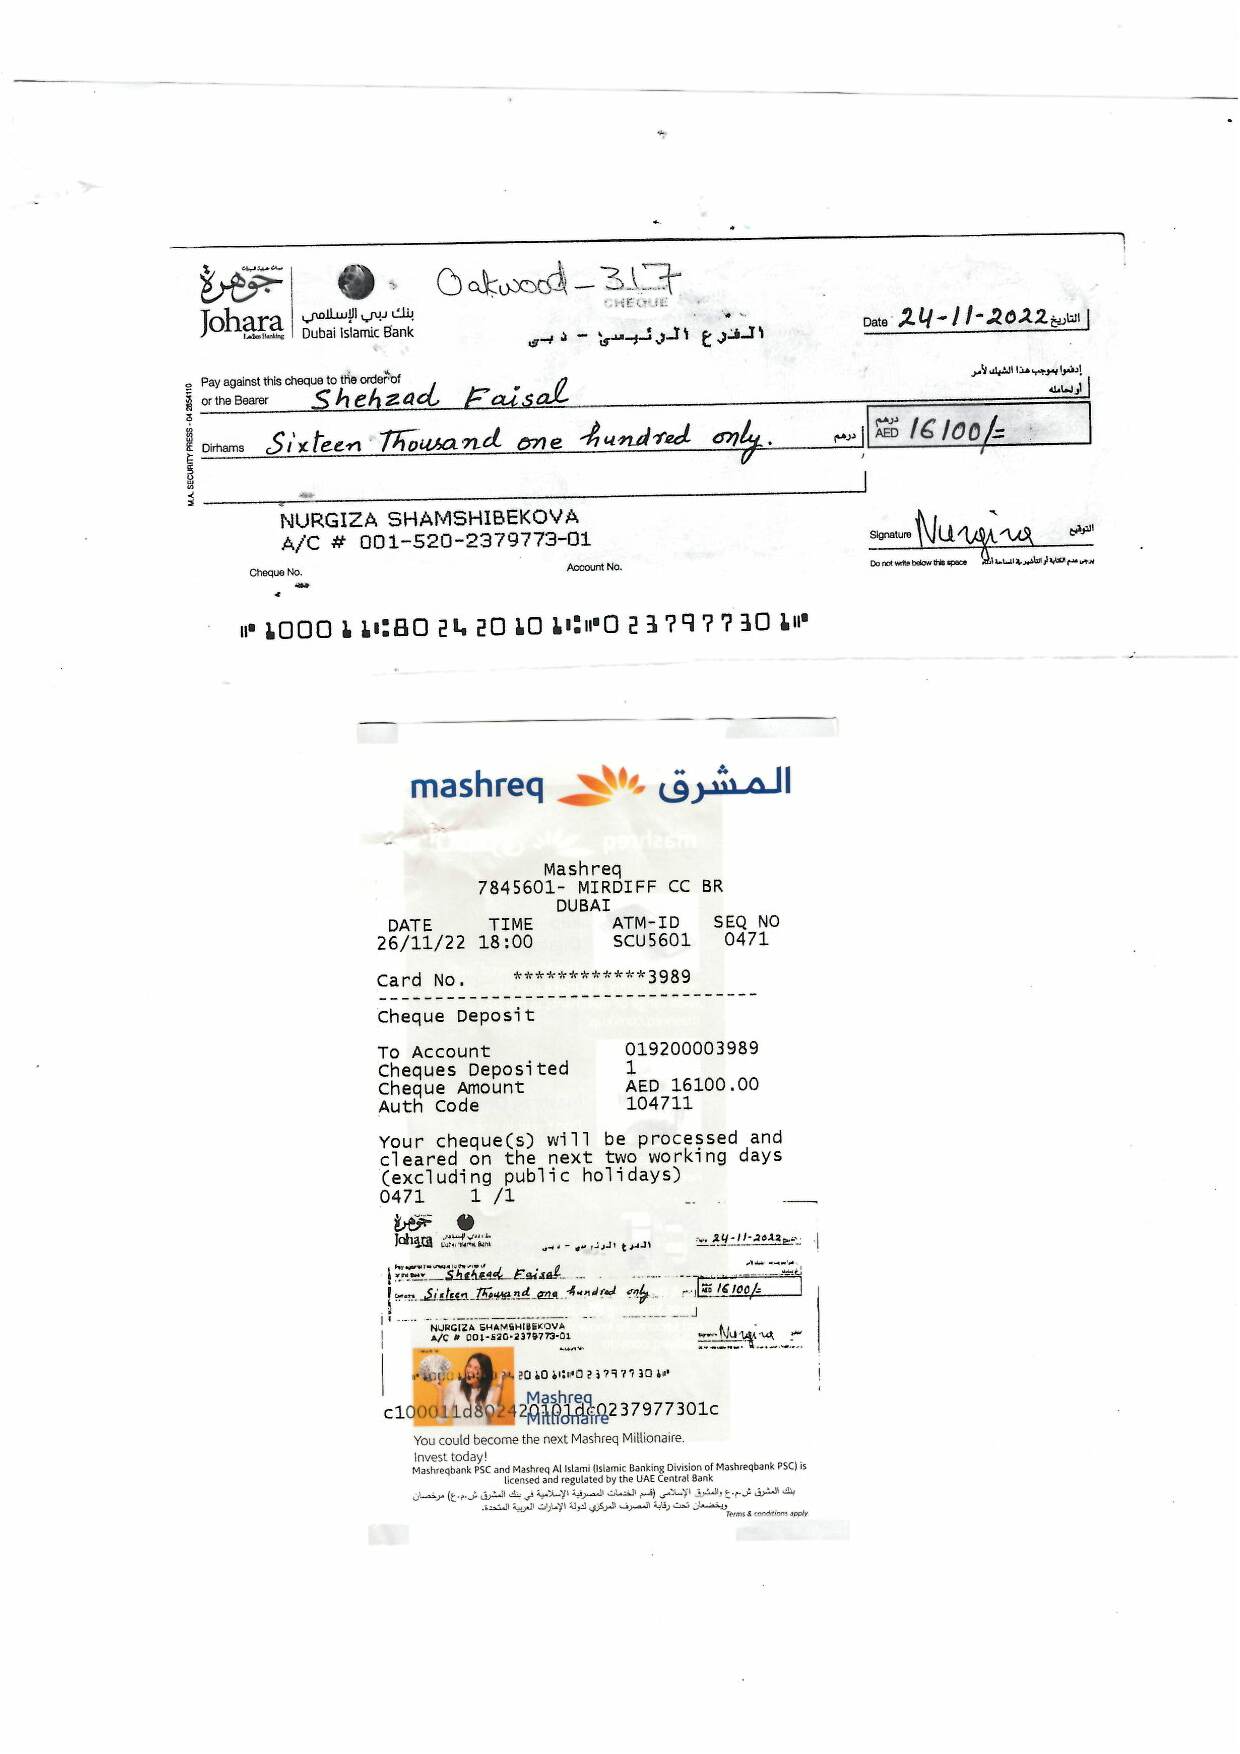 جوهرة
Johara
Ladies Banking
بنك دبي الإسلامي
Dubai Islamic Bank
Oakwood - 317
CHEQUE
الفرع الرئيسي - دبي
Date 24-11-2022 التاريخ
Pay against this cheque to the order of
إدفعوا بموجب هذا الشيك لأمر
or the Bearer Shehzad Faisal أو لحامله
Dirhams Sixteen Thousand one hundred only. درهم
درهم
AED 16100/=
M.A. SECURITY PRESS - 04 2854110
NURGIZA SHAMSHIBEKOVA
A/C # 001-520-2379773-01
Signature Nurgiza التوقيع
Cheque No. Account No.
Do not write below this space
⑈100011⑆802420101⑆⑈0237977301⑈
mashreq المشرق
Mashreq
7845601- MIRDIFF CC BR
DUBAI
DATE TIME ATM-ID SEQ NO
26/11/22 18:00 SCU5601 0471
Card No. ************3989
----------------------------------
Cheque Deposit
To Account 019200003989
Cheques Deposited 1
Cheque Amount AED 16100.00
Auth Code 104711
Your cheque(s) will be processed and
cleared on the next two working days
(excluding public holidays)
0471 1 /1
جوهرة
Johara
الفرع الرئيسي - دبي
24-11-2022
Shehzad Faisal
Sixteen Thousand one hundred only
16100/=
NURGIZA SHAMSHIBEKOVA
A/C # 001-520-2379773-01
Nurgiza
Mashreq
Millionaire
c100011d802420101dc0237977301c
You could become the next Mashreq Millionaire.
Invest today!
Mashreqbank PSC and Mashreq Al Islami (Islamic Banking Division of Mashreqbank PSC) is
licensed and regulated by the UAE Central Bank
بنك المشرق ش.م.ع والمشرق الإسلامي (قسم الخدمات المصرفية الإسلامية في بنك المشرق ش.م.ع) مرخصان
ويخضعان تحت رقابة المصرف المركزي لدولة الإمارات العربية المتحدة.
Terms & conditions apply